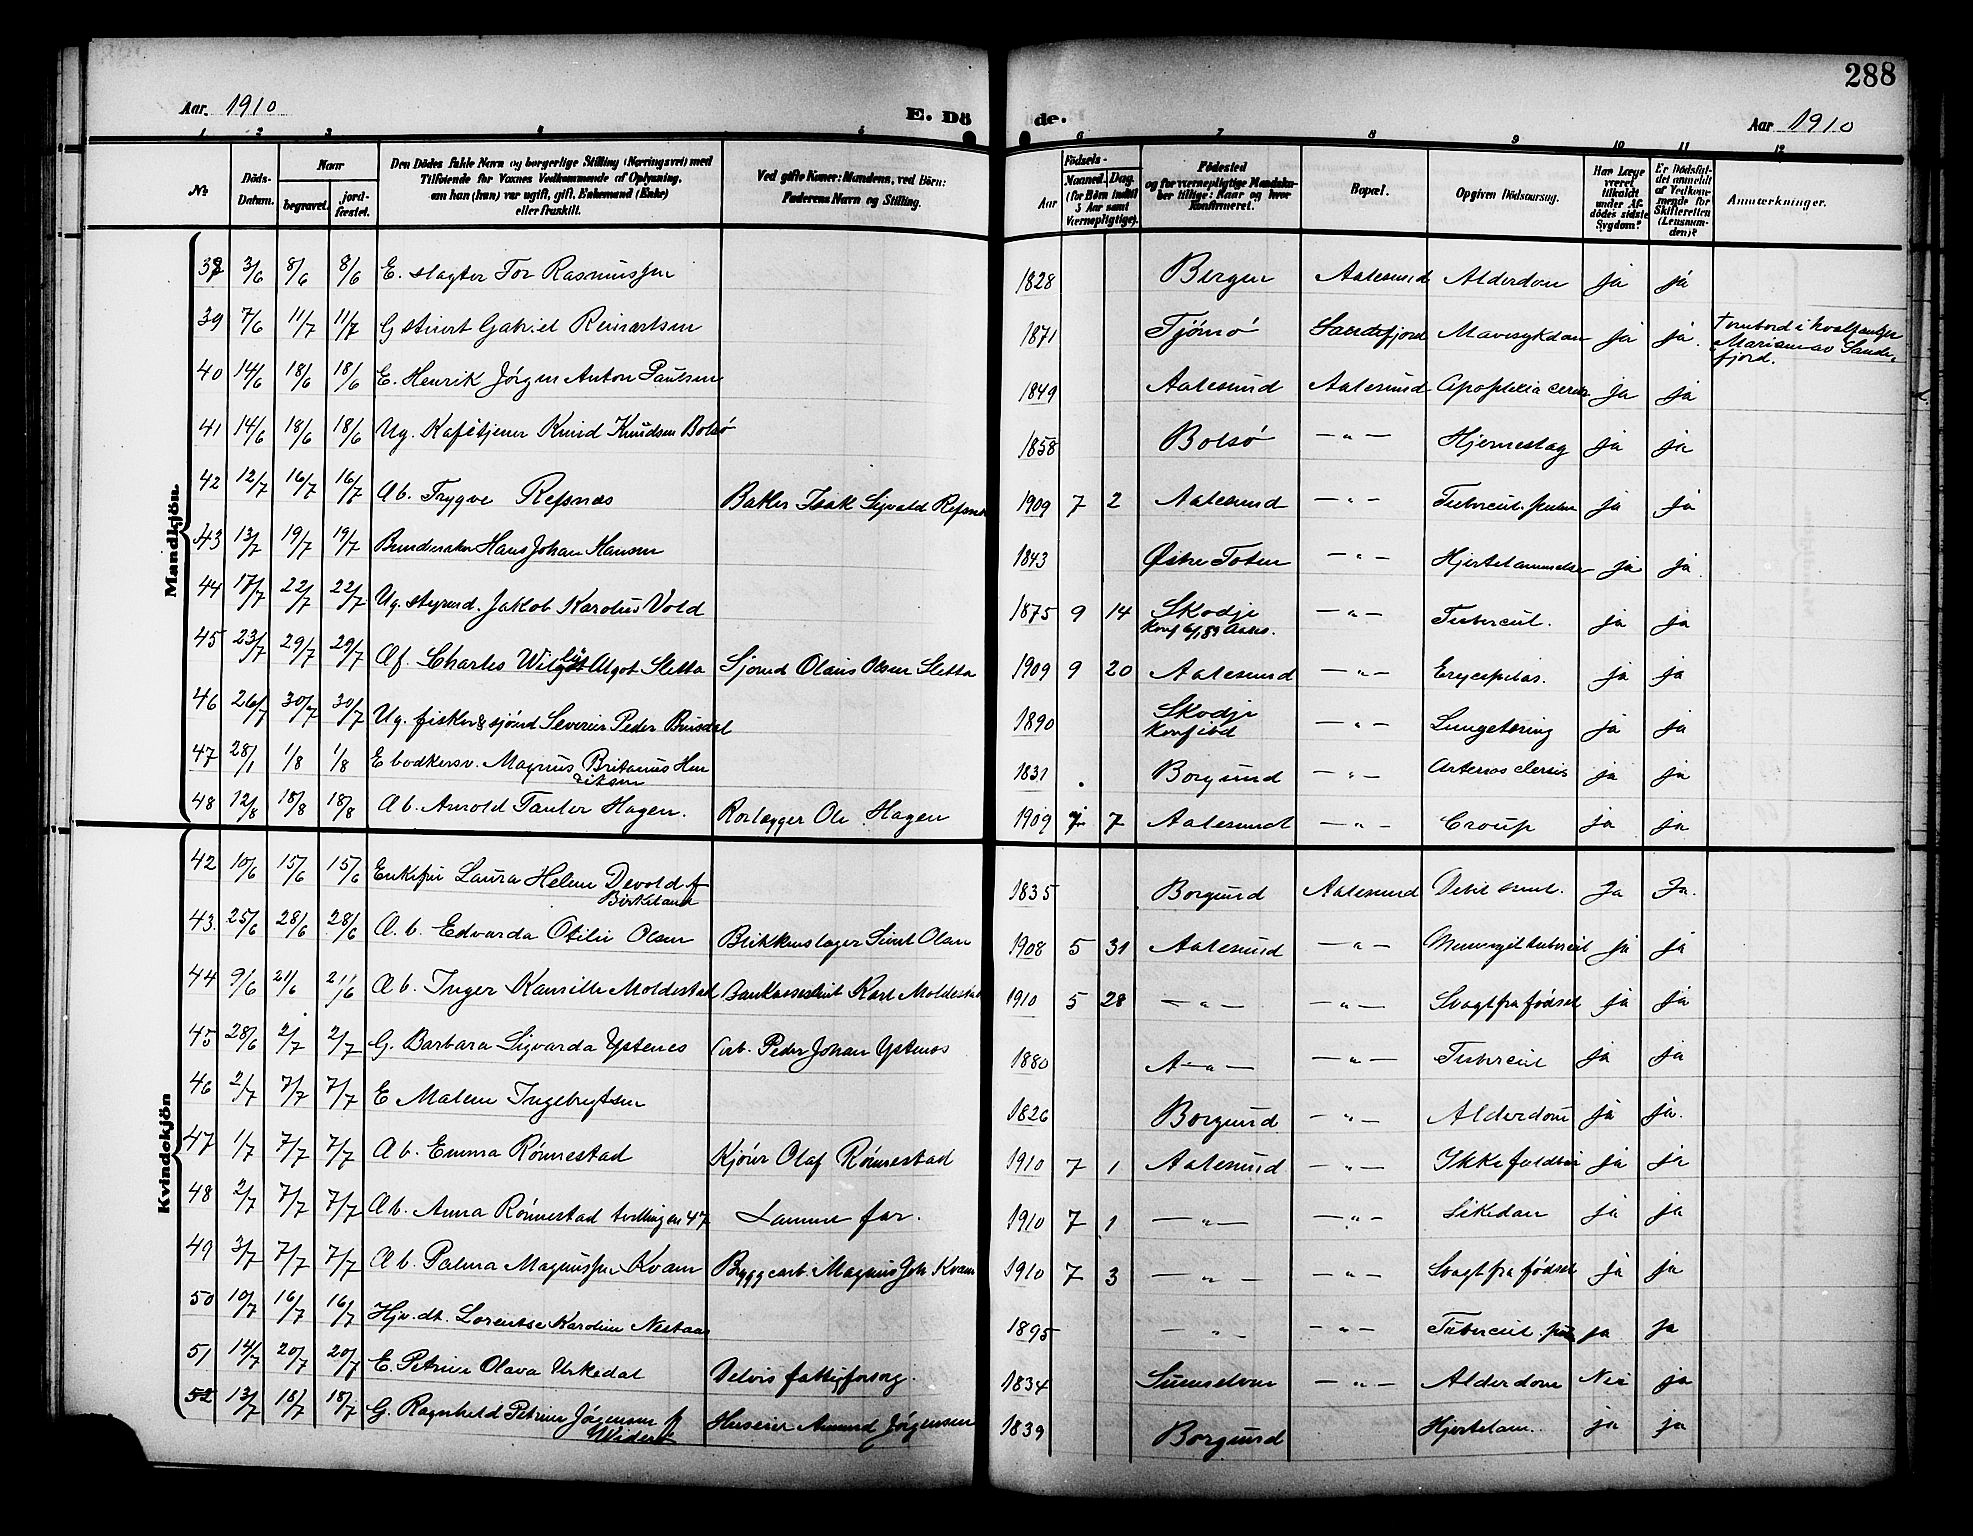 288
Aar. 1910
E. Dö
de.
Aar 1910
1 2 3 4 5 6 7 8 9 10 11 12
No
Döds-Datum.
Naar
begravet.
jord-fæstet.
Den Dödes fulde Navn og borgerlige Stilling (Næringsvei) med
Tilföiende for Voxnes Vedkommende af Oplysning,
om han (hun) var ugift, gift, Enkemand (Enke)
eller fraskilt.
Ved gifte Koner: Mandens, ved Börn:
Faderens Navn og Stilling.
Födsels-
Aar
Maaned. Dag.
(for Börn indtil
5 Aar samt
Værnepligtige).
Födested
og for værnepligtige Mandska-
ber tillige: Naar og hvor
Konfirmeret.
Bopæl.
Opgiven Dödsaarsag.
Har Læge
været
tilkaldt
under Af-
dödes sidste
Sygdom?
Er Dödsfal-
det anmeldt
af Vedkom-
mende for
Skifteretten
(Lensman-
den)?
Anmærkninger.
Mandkjön.
38 3/6 8/6 8/6 E. slagter Tor Rasmussen 1828 Bergen Aalesund Alderdom ja ja
39 7/6 11/7 11/7 G stuert Gabriel Reinertsen 1871 Tjömö Sandefjord Mavesykdom ja ja. ombord i hvalfanger Marian av Sandefjord.
40 14/6 18/6 18/6 E. Henrik Jörgen Anton Paulsen 1849 Aalesund Aalesund Apoplexia ja ja
41 14/6 18/6 18/6 Ug. Kafétjener Knud Knudsen Bolsö 1858 Bolsö — „ — Hjerneslag ja ja
42 12/7 16/7 16/7 Æ b. Trygve Refsnæs Baker Isak Sigvald Refsnæs 1909 7 2 Aalesund — „ — Tubercul. ja ja
43 13/7 19/7 19/7 Hans Johan Hansen 1843 Østre Toten — „ — ja ja.
44 17/7 22/7 22/7 Ug. styrmd. Jakob Karolius Vold 1875 9 14 Skodje — „ — Tubercul. ja ja
45 23/7 29/7 29/7 Charles Algot Sletta Sjömd Olaus Olsen Sletta 1909 9 20 Aalesund — „ — Erycepelas. ja ja
46 26/7 30/7 30/7 Ug. fisker & sjömd Peder Brusdal 1890 Skodje — „ — Lungetæring ja ja
47 28/1 1/8 1/8 E bødkersv. Magnus Britanus Henriksen 1831 Borgund — „ — ja ja
48 12/8 18/8 18/8 Æ b. Arnold Hagen. Rörlægger Ole Hagen 1909 7 7 Aalesund — „ — Croup ja ja
Kvindekjön
42 10/6 15/6 15/6 Enkefru Laura Helene Devold f Birkeland 1835 Borgund Aalesund Ja Ja.
43. 25/6 28/6 28/6 Æ. b. Edvarda Otilie Olsen Blikkenslager Olsen 1908 5 31 Aalesund — „ — ja ja
44 9/6 21/6 21/6 Æ b. Inger Moldestad Karl Moldestad 1910 5 28 — „ — — „ — Svagt fra födsel ja ja
45 28/6 2/7 2/7 G. Barbara Sigvarda Ystenes Arb. Peder Johan Ystenes 1880 A — „ — — „ — Tubercul ja ja
46 2/7 7/7 7/7 E Malene Ingebrigtsen 1826 Borgund — „ — Alderdom ja ja.
47 1/7 7/7 7/7 Æ b. Emma Rönnestad Olaf Rönnestad 1910 7 1 Aalesund — „ — ja ja
48 2/7 7/7 7/7 Æ b. Anna Rönnestad tvilling en 47 Samme far. 1910 7 1 — „ — — „ — Likedan ja ja
49 3/7 7/7 7/7 Æ b. Palma Magnussen Kvam Byggearb. Magnus Joh Kvam 1910 7 3 — „ — — „ — Svagt fra födsel ja ja
50 10/7 16/7 16/7 Hjv. dt. Lorentse Karoline Nestaas 1895 — „ — — „ — Tubercul ja ja
51 14/7 20/7 20/7 E. Petrine Olava Urkedal Delvis fattigforsorg. 1834 — „ — Alderdom Nei ja
52 13/7 18/7 18/7 G. Ragnhild Petrine Jörgensen f Huseier Amund Jörgensen 1839 Borgund ja ja